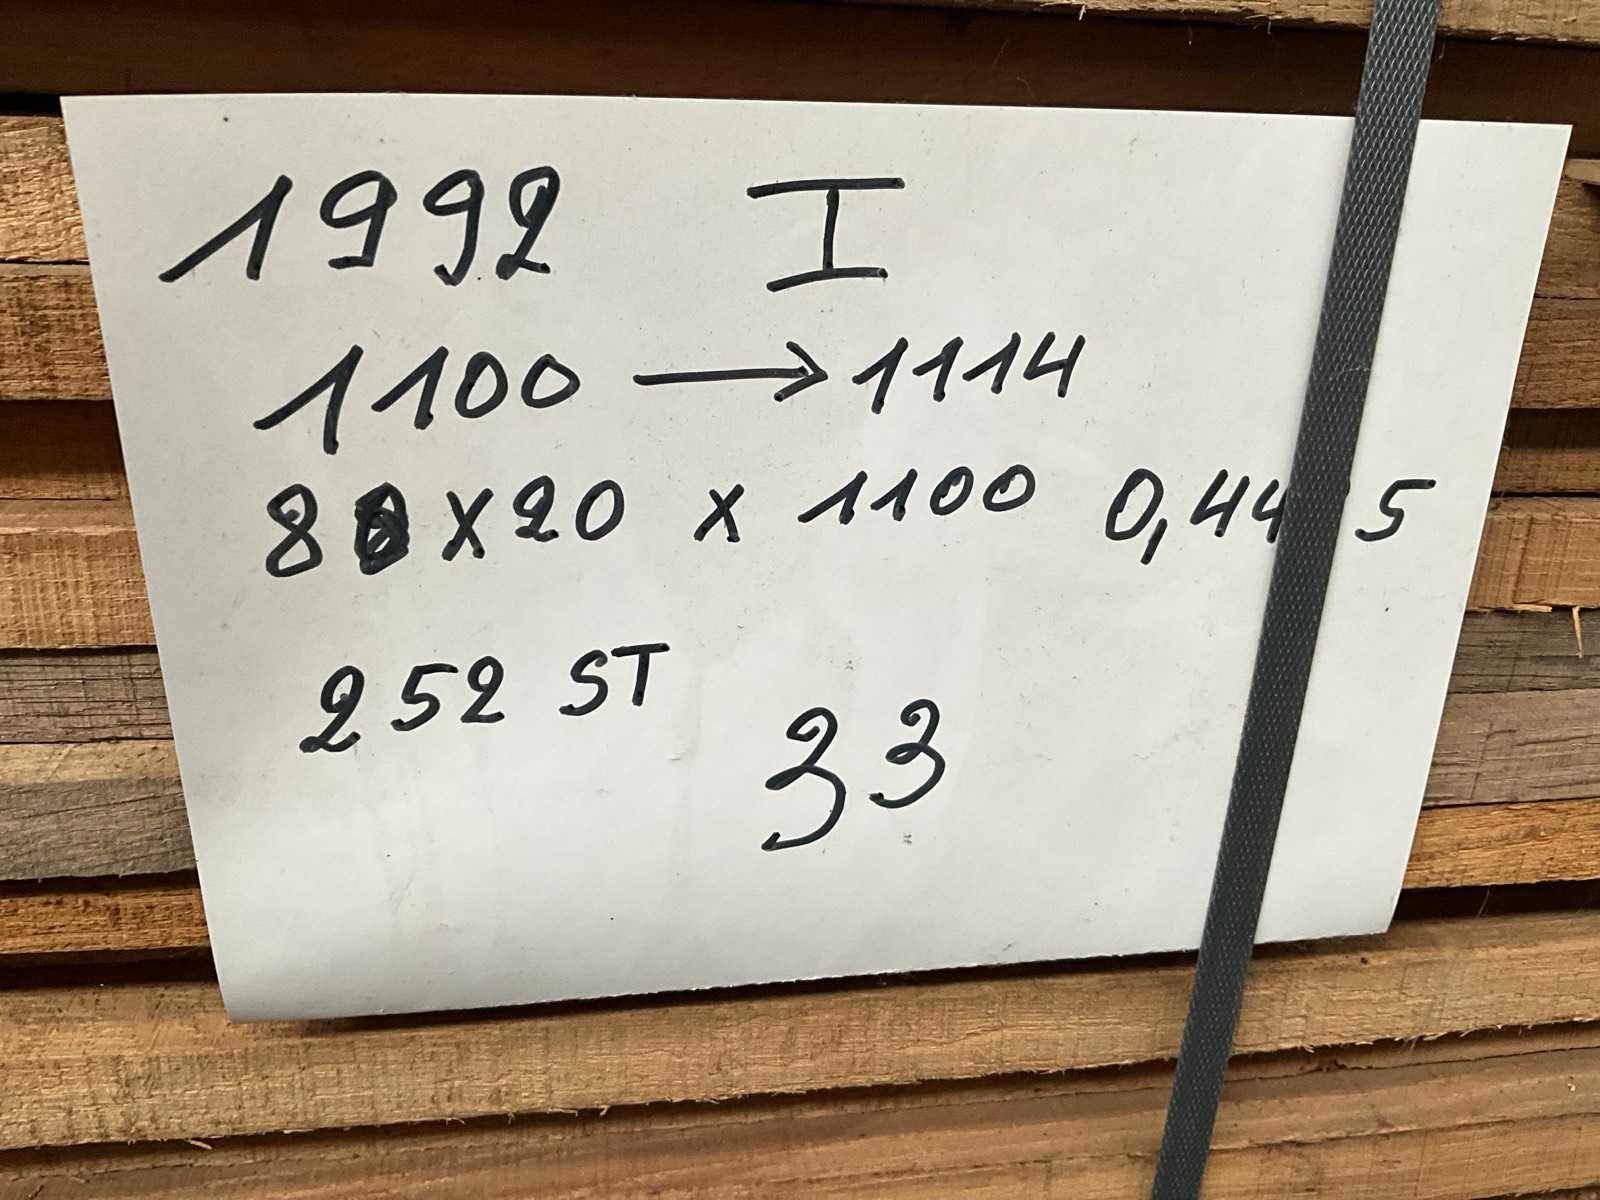 1992 I
1100 → 1114
80 x 20 x 1100 0,44 5
252 ST
33